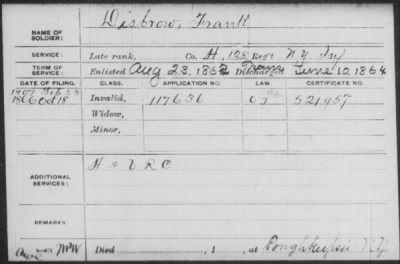 NAME OF SOLDIER: Disbrow, Frank
SERVICE: Late rank, Co. H, 128 Reg't N.Y. Inf
TERM OF SERVICE: Enlisted Aug 23, 1862 Discharged Trans June 10, 1864
DATE OF FILING. CLASS. APPLICATION NO. LAW. CERTIFICATE NO.
1907 Feb 23
1866 Oct 18 Invalid, 117636 521957
Widow,
Minor,
ADDITIONAL SERVICES: H = V R C
REMARKS:
Died , 1 , at Poughkeepsie N.Y.